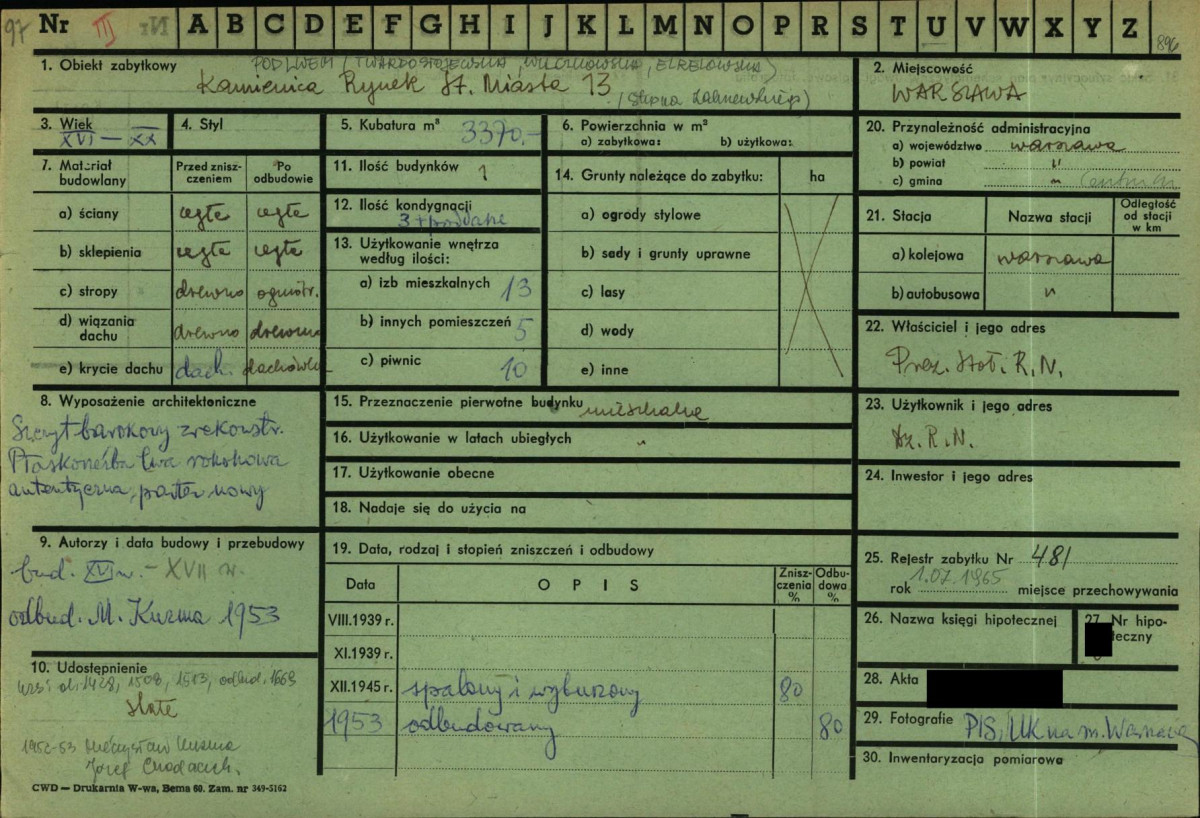 97 Nr III A B C D E F G H I J K L M N O P R S T U V W X Y Z 896
1. Obiekt zabytkowy POD LWEM (
Kamienica Rynek St. Miasta 13
2. Miejscowość
WARSZAWA
3. Wiek
XVI — XX
4. Styl
5. Kubatura m³ 3370.-
6. Powierzchnia w m²
a) zabytkowa: b) użytkowa:
20. Przynależność administracyjna
a) województwo warszawa
b) powiat "
c) gmina "
7. Materiał budowlany
Przed zniszczeniem
Po odbudowie
a) ściany cegła cegła
b) sklepienia cegła cegła
c) stropy drewno ogniotr.
d) wiązania dachu drewno drewno
e) krycie dachu dach. dachówka
11. Ilość budynków 1
12. Ilość kondygnacji
3 + poddasze
13. Użytkowanie wnętrza
według ilości:
a) izb mieszkalnych 13
b) innych pomieszczeń 5
c) piwnic 10
14. Grunty należące do zabytku: ha
a) ogrody stylowe
b) sady i grunty uprawne
c) lasy
d) wody
e) inne
21. Stacja Nazwa stacji Odległość od stacji w km
a) kolejowa warszawa
b) autobusowa "
22. Właściciel i jego adres
Prez. Stoł. R.N.
8. Wyposażenie architektoniczne
Szczyt barokowy zrekonstr.
Płaskorzeźba lwa rokokowa
autentyczna, parter nowy
15. Przeznaczenie pierwotne budynku mieszkalne
16. Użytkowanie w latach ubiegłych "
17. Użytkowanie obecne
18. Nadaje się do użycia na
23. Użytkownik i jego adres
Dz. R.N.
24. Inwestor i jego adres
9. Autorzy i data budowy i przebudowy
bud. XV w. - XVII w.
odbud. M. Kuzma 1953
10. Udostępnienie
1428, 1508, 1513, odbud. 1669
stałe
1952-53 Mieczysław Kuzma
Józef Chodaczek.
19. Data, rodzaj i stopień zniszczeń i odbudowy
Data OPIS Zniszczenia % Odbudowa %
VIII.1939 r.
XI.1939 r.
XII.1945 r. spalony i wyburzony 80
1953 odbudowany 80
25. Rejestr zabytku Nr 481
rok 1.07.1965 miejsce przechowywania
26. Nazwa księgi hipotecznej
27. Nr hipoteczny
28. Akta
29. Fotografie PIS, UK na m. Warszawę
30. Inwentaryzacja pomiarowa
CWD — Drukarnia W-wa, Bema 60. Zam. nr 349-5162